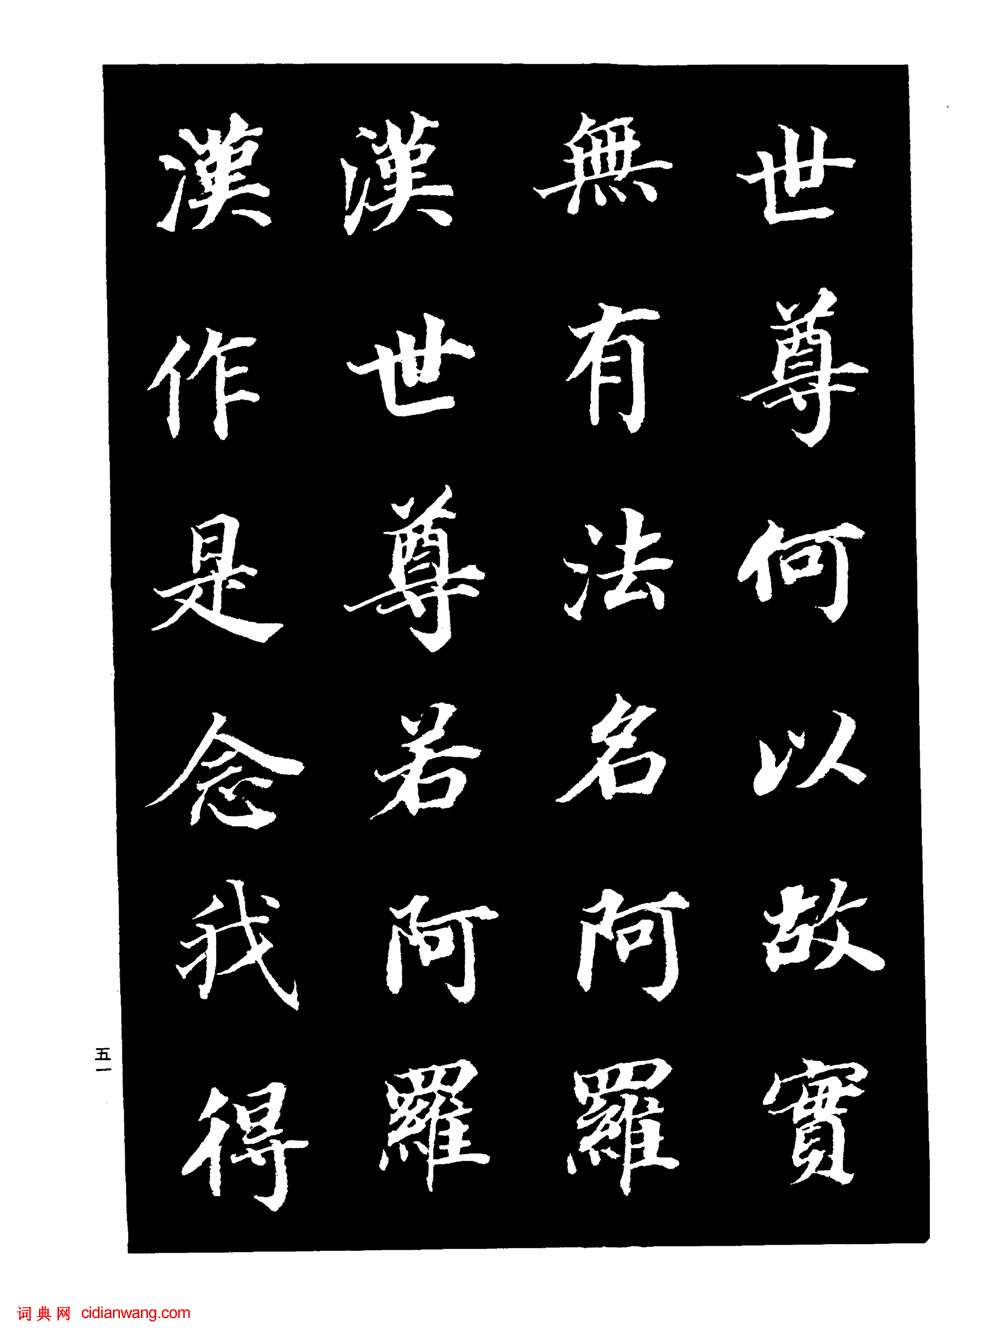 世尊何以故實
無有法名阿羅
漢世尊若阿羅
漢作是念我得
五一
词典网 cidianwang.com